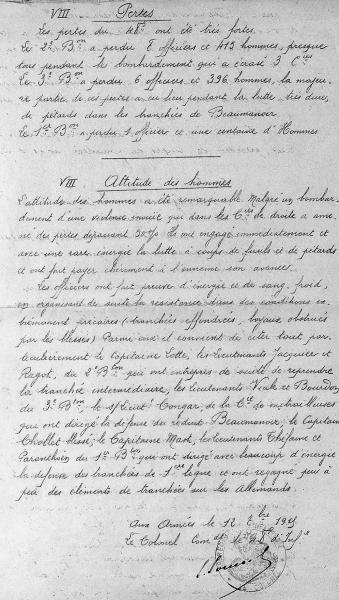 VIII Pertes
Les pertes du 48e ont été très fortes.
Le 2e Bon a perdu 8 officiers et 413 hommes, presque
tous pendant le bombardement qui a écrasé 3 Cies
Le 3e Bon a perdu 6 officiers et 396 hommes, la majeu-
re partie de ces pertes a eu lieu pendant la lutte, très dure,
de pétards dans les tranchées de Beaumanoir.
Le 1er Bon a perdu 1 officier et une centaine d'Hommes
VIII Attitude des hommes
L'attitude des hommes a été remarquable. Malgré un bombar-
dement d'une violence inouïe qui dans les Cies de droite a ame-
né des pertes dépassant 50% ils ont engagé immédiatement et
avec une rare énergie la lutte à coups de fusils et de pétards
et ont fait payer chèrement à l'ennemi son avance.
Les officiers ont fait preuve d'énergie et de sang froid,
en organisant de suite la résistance dans des conditions ex-
trêmement précaires (tranchées effondrées, boyaux obstrués
par les blessés) Parmi eux il convient de citer tout par-
ticulièrement le Capitaine Lotte, les Lieutenants Jacquier et
Pagot, du 2e Bon qui ont entrepris de suite de reprendre
la tranchée intermédiaire, les lieutenants Viak et Bourdon
du 3e Bon le s/Lieut Congar, de la Cie de mitrailleuses
qui ont dirigé la défense du réduit Beaumanoir, le Capitaine
Chollet, le Capitaine Mast, les lieutenants
du 1er Bon qui ont dirigé avec beaucoup d'énergie
la défense des tranchées de 1ère ligne et ont regagné peu à
peu des éléments de tranchées sur les Allemands.
Aux Armées le 12 bre 1915
Le Colonel Comdt le 48e d'Infie